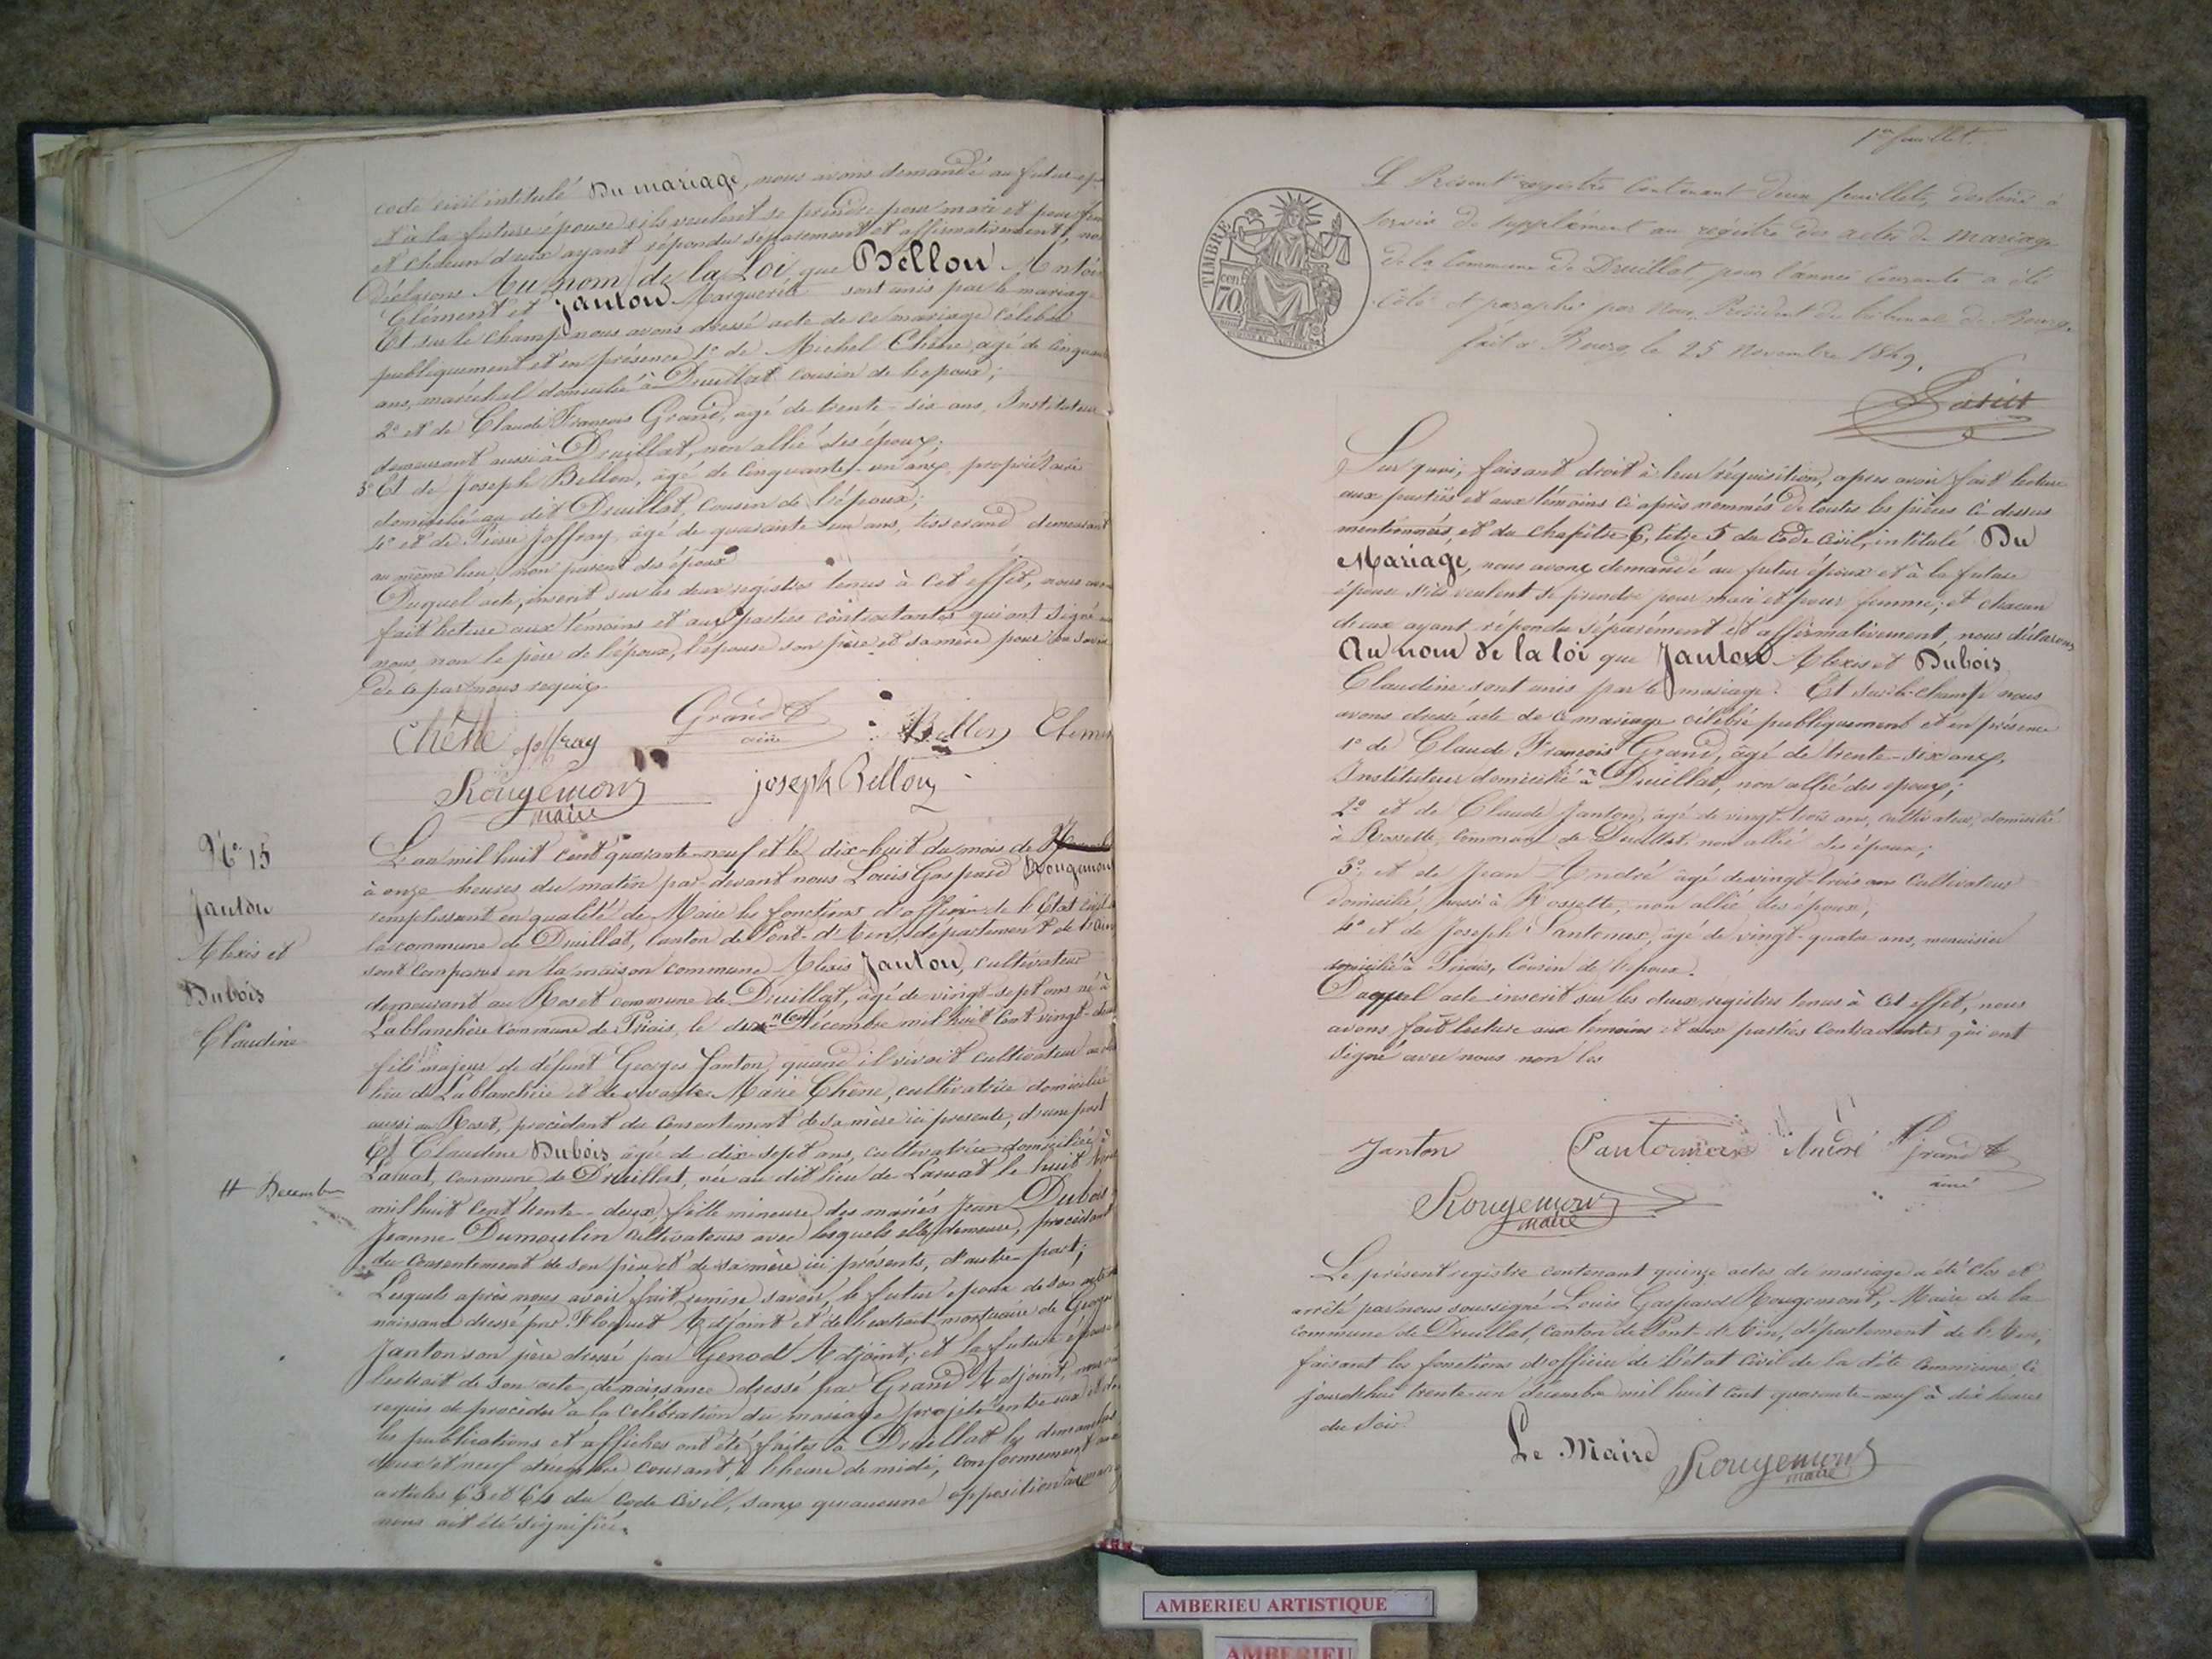 code civil intitulé Du mariage, nous avons demandé au futur ép
et à la future épouse s'ils veulent se prendre pour mari et pour fem
et chacun d'eux ayant répondu séparément et affirmativement, no
Déclarons Au nom de la Loi que Bellon Antoi
Clément et Janton Marguerite sont unis par le mariage
Et sur le champ nous avons dressé acte de ce mariage célébré
publiquement et en présence 1° de Michel Chêne, agé de cinquan
ans, maréchal domicilié à Druillat cousin de l'epoux;
2° et de Claude François Grand, âgé de trente-six ans, Instituteur
demeurant aussi à Druillat, non allié des époux;
3° Et de Joseph Bellon, âgé de cinquante-un ans, propriétaire
domicilié au dit Druillat, cousin de l'époux;
4° et de Pierre Joffray, âgé de quarante-un ans, tisserand demeurant
au même lieu, non parent des époux
Duquel acte, inscrit sur les deux registres tenus à cet effet, nous avon
fait lecture aux témoins et aux parties contractantes qui ont signé
nous, non le père de l'époux, l'épouse son père et sa mère pour ne savoir
de ce par nous requis.
Chêne joffray Grand aîné Bellon Clement
Rougemont maire joseph Bellon
N° 15
Janton
Alexis et
Dubois
Claudine
L'an mil huit cent quarante-neuf et le dix-huit du mois de
à onze heures du matin par-devant nous Louis Gaspard Rougemont
remplissant en qualité de Maire les fonctions d'officier de l'Etat civil
la commune de Druillat, canton de Pont-d'Ain, département de l'Ain
sont comparus en la maison commune Alexis Janton, cultivateur
demeurant au Roset commune de Druillat, âgé de vingt-sept ans né à
Lablanchère commune de Priais, le décembre mil huit cent vingt-deux
fils majeur de défunt Georges Janton, quand il vivait cultivateur au
lieu de Lablanchère et de vivante Marie Chêne, cultivatrice domiciliée
aussi au Roset, procédant du consentement de sa mère ici présente, d'une part
Et Claudine Dubois âgée de dix-sept ans, cultivatrice domiciliée à
Lasuat, commune de Druillat, née au dit lieu de Lasuat le huit
# Decembre
mil huit cent trente-deux, fille mineure des mariés Jean Dubois
Jeanne Dumoulin cultivateurs avec lesquels elle demeure, procédant
du consentement de son père et de sa mère ici présents, d'autre part;
Lesquels après nous avoir fait remise savoir, le futur epoux de son acte
naissance dressé par Floquet Adjoint et de l'extrait mortuaire de Georges
Janton son père dressé par Genod Adjoint; et la future épouse
l'extrait de son acte de naissance dressé par Grand Adjoint, nous
requis de procéder à la célébration du mariage projeté entre eux et
les publications et affiches ont été faites à Druillat les dimanches
deux et neuf décembre courant, à l'heure de midi, conformément aux
articles 63 et 64 du Code civil, sans qu'aucune opposition au
nous ait été signifiée.
1er feuillet.
Le Présent registre contenant deux feuillets, destiné à
servir de supplément au régistre des actes de mariage
de la commune de Druillat pour l'année courante a été
côté et paraphé par Nous, Président du tribunal de Bourg.
fait à Bourg, le 25 Novembre 1849.
TIMBRE
cen. 70
Sur quoi, faisant droit à leur réquisition, apres avoir fait lecture
aux parties et aux témoins ci-après nommés de toutes les pièces ci dessus
mentionnées, et du chapitre 6, titre 5 du Code civil, intitulé Du
Mariage, nous avons demandé au futur époux et à la future
épouse s'ils veulent se prendre pour mari et pour femme; et chacun
deux ayant répondu séparément et affirmativement, nous déclarons
Au nom de la loi que Janton Alexis et Dubois
Claudine sont unis par le mariage. Et sur-le-champ nous
avons dressé acte de ce mariage célébré publiquement et en présence
1° de Claude François Grand, âgé de trente-six ans,
Instituteur domicilié à Druillat, non allié des epoux;
2° et de Claude Janton, âgé de vingt-trois ans, cultivateur, domicilié
à Rossette, commune de Druillat, non allié des époux;
3°, et de Jean André âgé de vingt-trois ans cultivateur
domicilié, aussi à Rossette, non allié des époux;
4° et de Joseph Pantonnier, âgé de vingt-quatre ans, menuisier
domicilié à Priais, Cousin de l'époux.
Duquel acte inscrit sur les deux registres tenus à cet effet, nous
avons fait lecture aux temoins et aux parties contractantes qui ont
signé avec nous non les
Janton André Grand aîné
Rougemont maire
Le présent registre contenant quinze actes de mariage a été clos et
arrêté par nous soussigné Louis Gaspard Rougemont, Maire de la
commune de Druillat, canton de Pont-d'Ain, département de l'Ain,
faisant les fonctions d'officier de l'état civil de la dite commune, ce
jourd'hui trente-un décembre mil huit cent quarante-neuf à dix heures
du soir.
Le Maire Rougemont maire
AMBERIEU ARTISTIQUE
AMBERIEU